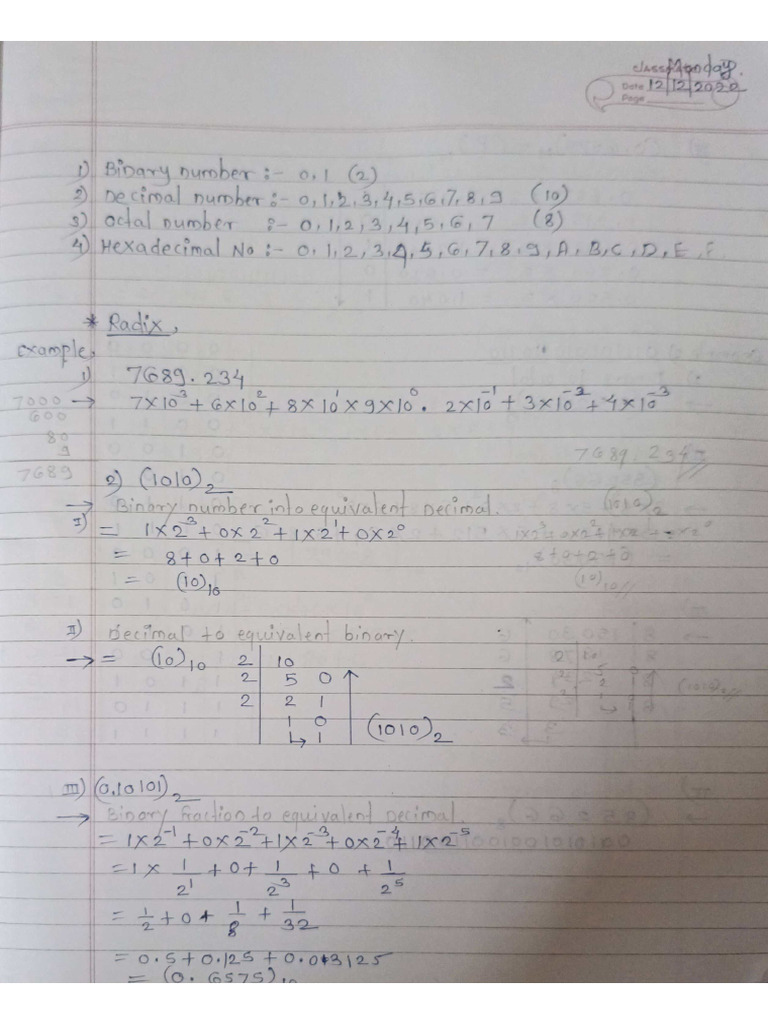 Monday.
CLASSMATE
Date 12/12/2022
Page
1) Binary number :- 0,1 (2)
2) Decimal number :- 0,1,2,3,4,5,6,7,8,9 (10)
3) octal number :- 0,1,2,3,4,5,6,7 (8)
4) Hexadecimal No :- 0,1,2,3,4,5,6,7,8,9,A,B,C,D,E,F
* Radix,
example,
1) 7689.234
7000 → 7×10⁻³ + 6×10² + 8×10¹ × 9×10⁰ . 2×10⁻¹ + 3×10⁻² + 4×10⁻³
600
80
9
7689
2) (1010)₂
→ Binary number into equivalent Decimal.
I) = 1×2³ + 0×2² + 1×2¹ + 0×2⁰
= 8+0+2+0
= (10)₁₀
II) Decimal to equivalent binary.
→ = (10)₁₀ 2 | 10
2 | 5 0
2 | 2 1
1 0
↳ 1 (1010)₂
III) (0.10101)₂
→ Binary fraction to equivalent Decimal.
= 1×2⁻¹ + 0×2⁻² + 1×2⁻³ + 0×2⁻⁴ + 1×2⁻⁵
= 1 × 1/2¹ + 0 + 1/2³ + 0 + 1/2⁵
= 1/2 + 0 + 1/8 + 1/32
= 0.5 + 0.125 + 0.03125
= (0.6575)₁₀